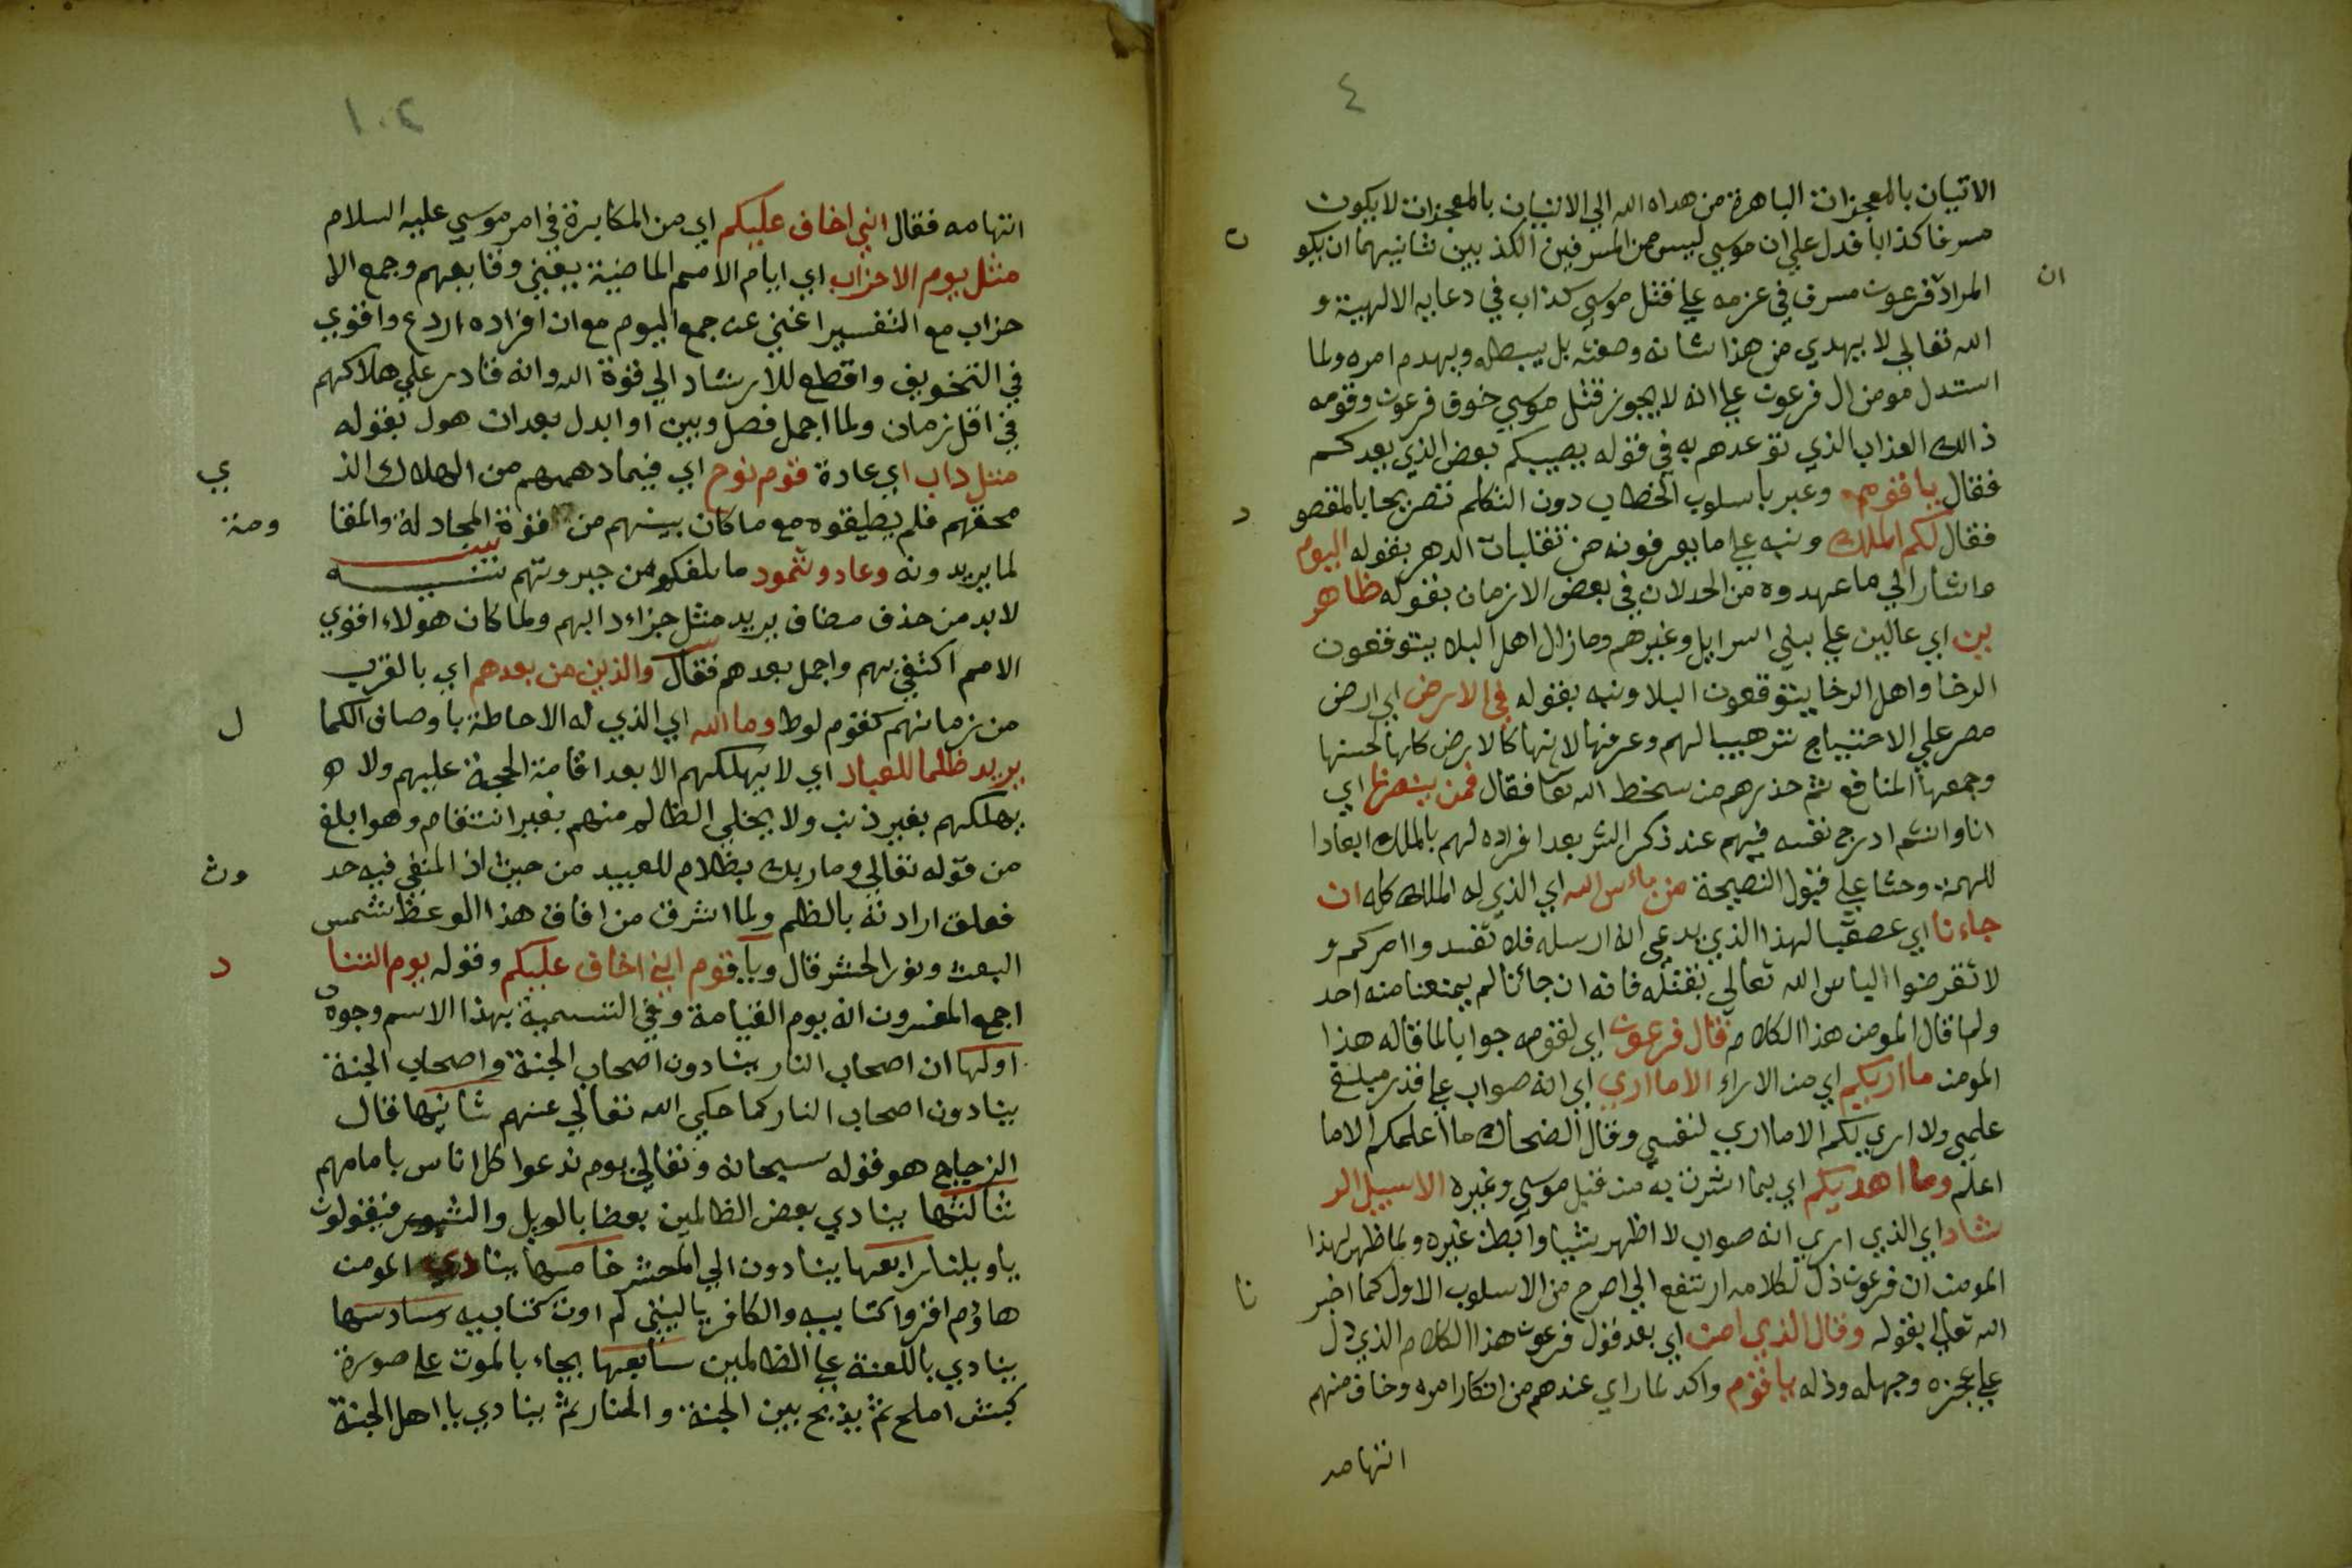 ٤
الاتيان بالمعجزات الباهرة من هداه الله الي الاتيان بالمعجزات لا يكون
مسرفا كذابا فدل علي ان موسي ليس من المسرفين الكذبين ثانيهما ان يكو ن
المراد ان فرعون مسرف في عزمه علي قتل موسي كذاب في دعايه الالهية و
الله تعالي لا يهدي من هذا شانه وصفته بل يبطله ويهدم امره ولما
استدل مومن ال فرعون علي انه لا يجوز قتل موسي خوف فرعون وقومه
ذالك العذاب الذي توعدهم به في قوله يصيبكم بعض الذي يعدكم
فقال يا قوم وعبر باسلوب الخطاب دون التكلم تصريحا بالمقصو د
فقال لكم الملك ونبه علي ما يعرفونه من تقلبات الدهر بقوله اليوم
واشار الي ما عهدوه من الخدلان في بعض الازمان بقوله ظاهر
ين اي عالين علي بني اسرايل وغيرهم ومازال اهل البلا يتوقعون
الرخا واهل الرخا يتوقعون البلا ونبه بقوله في الارض اي ارض
مصر علي الاحتياج ترهيبا لهم وعرفها لانها كالارض كلها لحسنها
وجمعها المنافع ثم حذرهم من سخط الله تعا فقال فمن ينصرنا اي
انا وانتم ادرج نفسه فيهم عند ذكر الشر بعد افراده لهم بالملك ابعادا
للهمة وحثا علي قبول النصيحة من باس الله اي الذي له الملك كله ان
جاءنا اي عصقبا لهذا الذي يدعي انه ارسله فلا تفسدوا امركم و
لا تقرضوا الباس الله تعالي بقتله فانه ان جائنا لم يمنعنا منه احد
ولما قال المومن هذا الكلام قال فرعون اي لقومه جوابا لما قاله هذا
المومن ما اريكم اي من الاراء الا ما اري اي انه صواب علي قدر مبلغ
علمي ولا اري لكم الا ما اري لنفسي وقال الضحاك ما اعلمكم الا ما
اعلم وما اهديكم اي بما اشرت به من قتل موسي وغيره الا سبيل الر
شاد اي الذي اري انه صواب لا اظهر شيا وابطن غيره ولما ظهر لهذا
المومن ان فرعون ذل لكلامه ارتفع الي اصرح من الاسلوب الاول كما اخبر نا
الله تعالي بقوله وقال الذي امن اي بعد قول فرعون هذا الكلام الذي دل
علي عجزه وجهله وذله يا قوم واكد لما راي عندهم من انكار امره وخاف منهم
اتهامه
١٠٤
اتهامه فقال اني اخاف عليكم اي من المكابرة في امر موسي عليه السلام
مثل يوم الاحزاب اي ايام الامم الماضية يعني وقايعهم وجمع الا
حزاب مع التفسير اغني عن جمع اليوم مع ان افراده اردع واقوي
في التخويف واقطع للارشاد الي قوة الله وانه قادر علي هلاكهم
في اقل زمان ولما اجمل فصل وبين او ابدل بعد ان هول بقوله
مثل داب اي عادة قوم نوح اي فيما دهمهم من الهلاك الذ ي
محقهم فلم يطيقوه مع ما كان بينهم من قوة المجادلة والمقا ومة
لما يريدونه وعاد وثمود ما بلغكم من جبروتهم تنبيه
لا بد من حذف مضاف يريد مثل جزاء دابهم ولما كان هولاء اقوي
الامم اكتفي بهم واجمل بعدهم فقال والذين من بعدهم اي بالقرب
من زمانهم كقوم لوط وما الله اي الذي له الاحاطة باوصاف الكما ل
يريد ظلما للعباد اي لا يهلكهم الا بعد اقامة الحجة عليهم ولا
يهلكهم بغير ذنب ولا يخلي الظالم منهم بغير انتقام وهو ابلغ
من قوله تعالي وما ربك بظلام للعبيد من حيث ان المنفي فيه حد وث
فعلق ارادته بالظلم ولما اشرق من افاق هذا الوعظ شمس
البعث ونور الحشر قال ويا قوم اني اخاف عليكم وقوله يوم التنا د
اجمع المفسرون انه يوم القيامة وفي التسمية بهذا الاسم وجوه
اولها ان اصحاب النار ينادون اصحاب الجنة واصحاب الجنة
ينادون اصحاب النار كما حكي الله تعالي عنهم ثانيها قال
الزجاج هو قوله سبحانه وتعالي يوم ندعوا كل اناس بامامهم
ثالثها ينادي بعض الظالمين بعضا بالويل والثبور فيقولون
يا ويلنا رابعها ينادون الي المحشر خامسها ينادي المومن
هاؤم اقروا كتابيه والكافر يا ليتني لم اوت كتابيه وسادسها
ينادي باللعنة علي الظالمين سابعها يجاء بالموت علي صورة
كبش املح ثم يذبح بين الجنة والنار ثم ينادي يا اهل الجنة